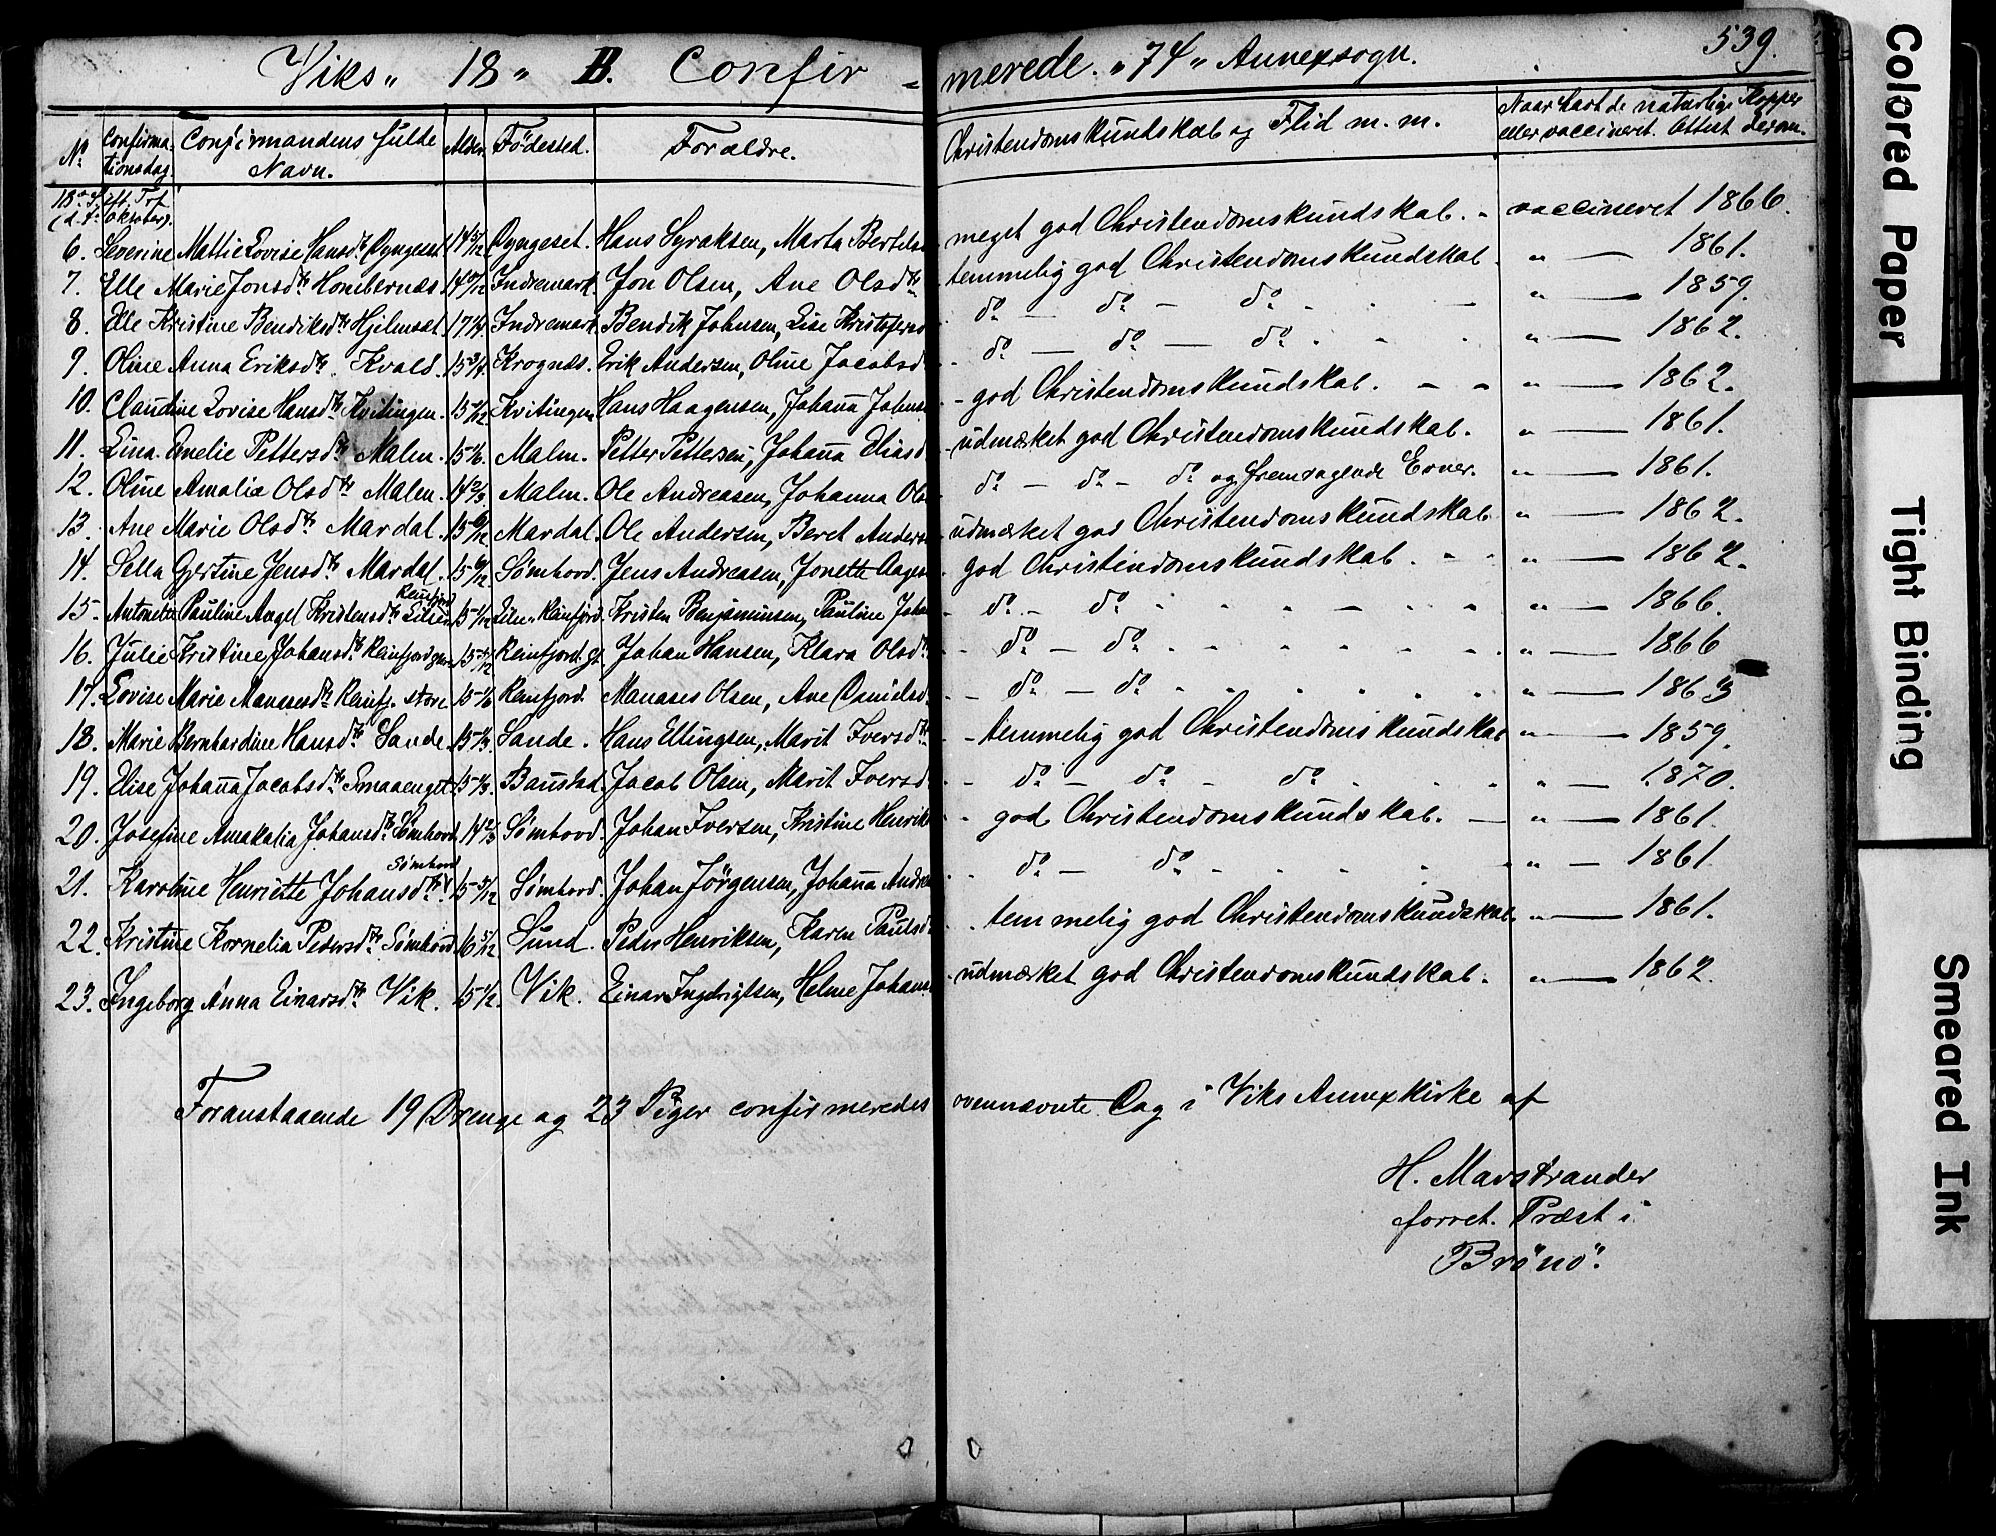 Viks „ 18 „ B. Confir - merede. „ 74 „ Annexsogn. 539.
No Confirma- tionsdag. Confirmandens fulde Navn. Alder. Födested. Forældre. Christendomskundskab og Flid m. m. Naar havt de naturlige Kopper eller vaccineret. Attest derom.
18de S. eft. Tref.
(d. 4de Oktober).
6. Severine Mattie Lovise Hansdtr Dyngeset 14 Dyngeset. Hans Syraksen, Marta Bertels meget god Christendomskundskab. „ vaccineret 1866.
7. Elle Marie Jonsdtr Hombernæs 14 Indremark. Jon Olsen, Ane Olsdtr temmelig god Christendomskundskab. „ — 1861.
8. Elle Kristine Bendiksdtr Hjelmset 17 1/4 Indremark. Bendik Johnsen, Lise Kristofersd do — do — do „ — 1859.
9. Oline Anna Eriksdtr. Kvald. 15 Krognæs. Erik Andersen, Oline Jacobsd. do — do — do „ — 1862.
10. Claudine Lovise Hansdtr Kvitingen. 15 Kvitingen Hans Haagensen, Johaña Johns - god Christendomskundskab. „ — 1862.
11. Lina Amelie Pettersdtr Malm. 15 1/6. Malm. Petter Pettersen, Johaña Eliasd - udmærket god Christendomskundskab. „ — 1861.
12. Oline Amalia Olsdtr Malm. 14 2/3. Malm. Ole Andreasen, Johanna Ols do — do — do og fremragende Evner. „ — 1861.
13. Ane Marie Olsdtr Mardal. 15 Mardal. Ole Andersen, Beret Anders udmærket god Christendomskundskab „ — 1862.
14. Sella Gjertine Jensdtr Mardal. 15 Sömhovd. Jens Andreasen, Jonette Aages god Christendomskundskab. „ — 1862.
15. Antonette Pauline Angel Kristensdtr Reinfjord 15 1/12 Reinfjord. Kristen Benjaminsen, Pauline Johan - do — do „ — 1866.
16. Julie Kristine Johansdtr Reinfjord 15 Reinfjord. Johan Hansen, Klara Olsd. - do — do „ — 1866
17. Lovise Marie Manasesdtr Reinfj. store 15 1/6 Reinfjord. Manases Olsen, Ane Danielsd. - do — do „ — 1863
18. Marie Bernhardine Hansdtr Sande. 15 Sande. Hans Ellingsen, Marit Iversdtr - temmelig god Christendomskundskab „ — 1859.
19. Elise Johaña Jacobsdtr Smaaenget. 15 Baustad. Jacob Olsen, Marit Iversd. - do — do — do „ — 1870.
20. Josefine Amakalia Johansdtr Sömhovd. 14 2/3 Sömhovd. Johan Iversen, Kristine Henriks - god Christendomskundskab. „ — 1861.
21. Karoline Henriette Johansdtr Sömhovd 15 Sömhovd. Johan Jörgensen, Johaña Andre do — do „ — 1861
22. Kristine Kornelia Pedersdtr Sömhovd 16 5/12 Sund. Peder Henriksen, Karen Paulsd. temmelig god Christendomskundskab. „ — 1861.
23. Ingeborg Anna Einarsdtr Vik. 15 1/2. Vik. Einar Ingebrigtsen, Helene Johans - udmærket god Christendomskundskab. „ — 1862.
Foranstaaende 19 Drenge og 23 Piger confirmeredes ovennævnte Dag i Viks Annexkirke af
H. Marstrander
forret. Præst i
Brönö.
Colored Paper
Tight Binding
Smeared Ink